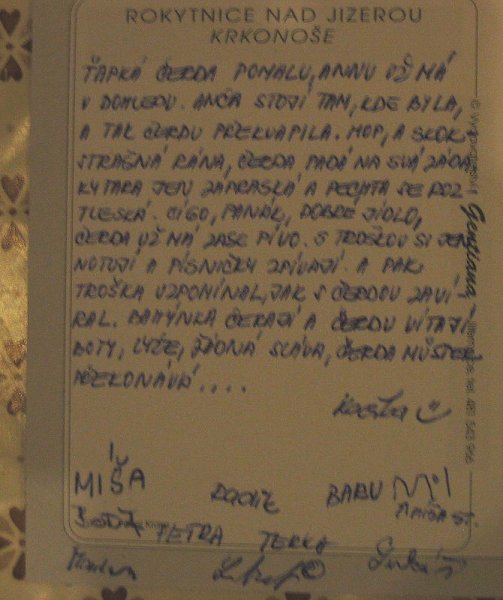 ROKYTNICE NAD JIZEROU
KRKONOŠE
ŤAPKÁ ČERDA POMALU, ANNU UŽ MÁ
V DOHLEDU. ANČA STOJÍ TAM, KDE BYLA,
A TAK ČERDU PŘEKVAPILA. HOP, A SKOK
STRAŠNÁ RÁNA, ČERDA PADÁ NA SVÁ ZÁDA
KYTARA JEN ZAPRASKÁ A PECHTA SE ROZ
TLESKÁ. CIGO, PANÁK, DOBRÉ JÍDLO,
ČERDA UŽ MÁ ZASE PIVO. S TROŠKOU SI JEN
NOTUJÍ A PÍSNIČKY ZPÍVAJÍ. A PAK
TROŠKA VZPOMÍNAL, JAK S ČERDOU ZAVÍ-
RAL. BAHÝNKA ČEKAJÍ A ČERDU VÍTAJÍ
BOTY, LYŽE, ŽÁDNÁ SLÁVA, ČERDA MŮSTEK
PŘEKONÁVÁ....
MIŠA
BABU
MIŠA ST.
PETRA TERKA
Gentiana